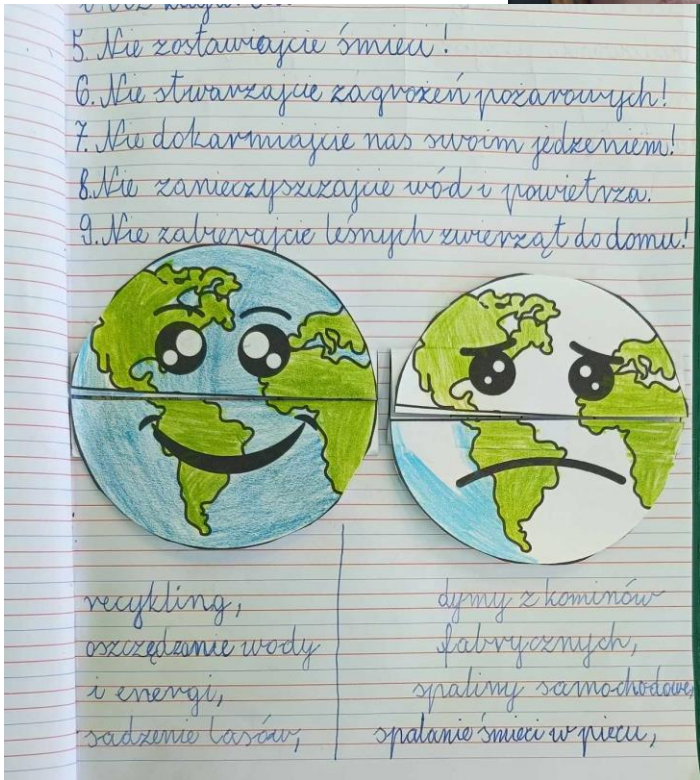 5. Nie zostawiajcie śmieci!
6. Nie stwarzajcie zagrożeń pożarowych!
7. Nie dokarmiajcie nas swoim jedzeniem!
8. Nie zanieczyszczajcie wód i powietrza.
9. Nie zabierajcie leśnych zwierząt do domu!
recykling,
oszczędzanie wody
i energi,
sadzenie lasów,
dymy z kominów
fabrycznych,
spaliny samochodowe,
spalanie śmieci w piecu,